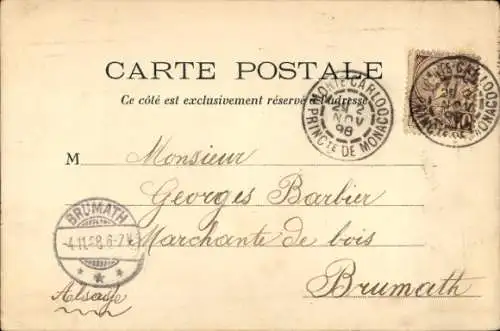 CARTE POSTALE
Ce côté est exclusivement réservé à l'adresse
MONTE CARLO
2 NOV 98
PRINCTE DE MONACO
MONTE CARLO
PRINCTE DE MONACO
M Monsieur
Georges Barbier
Marchante de bois
Brumath
Alsaye
BRUMATH
4.11.98.6-7N